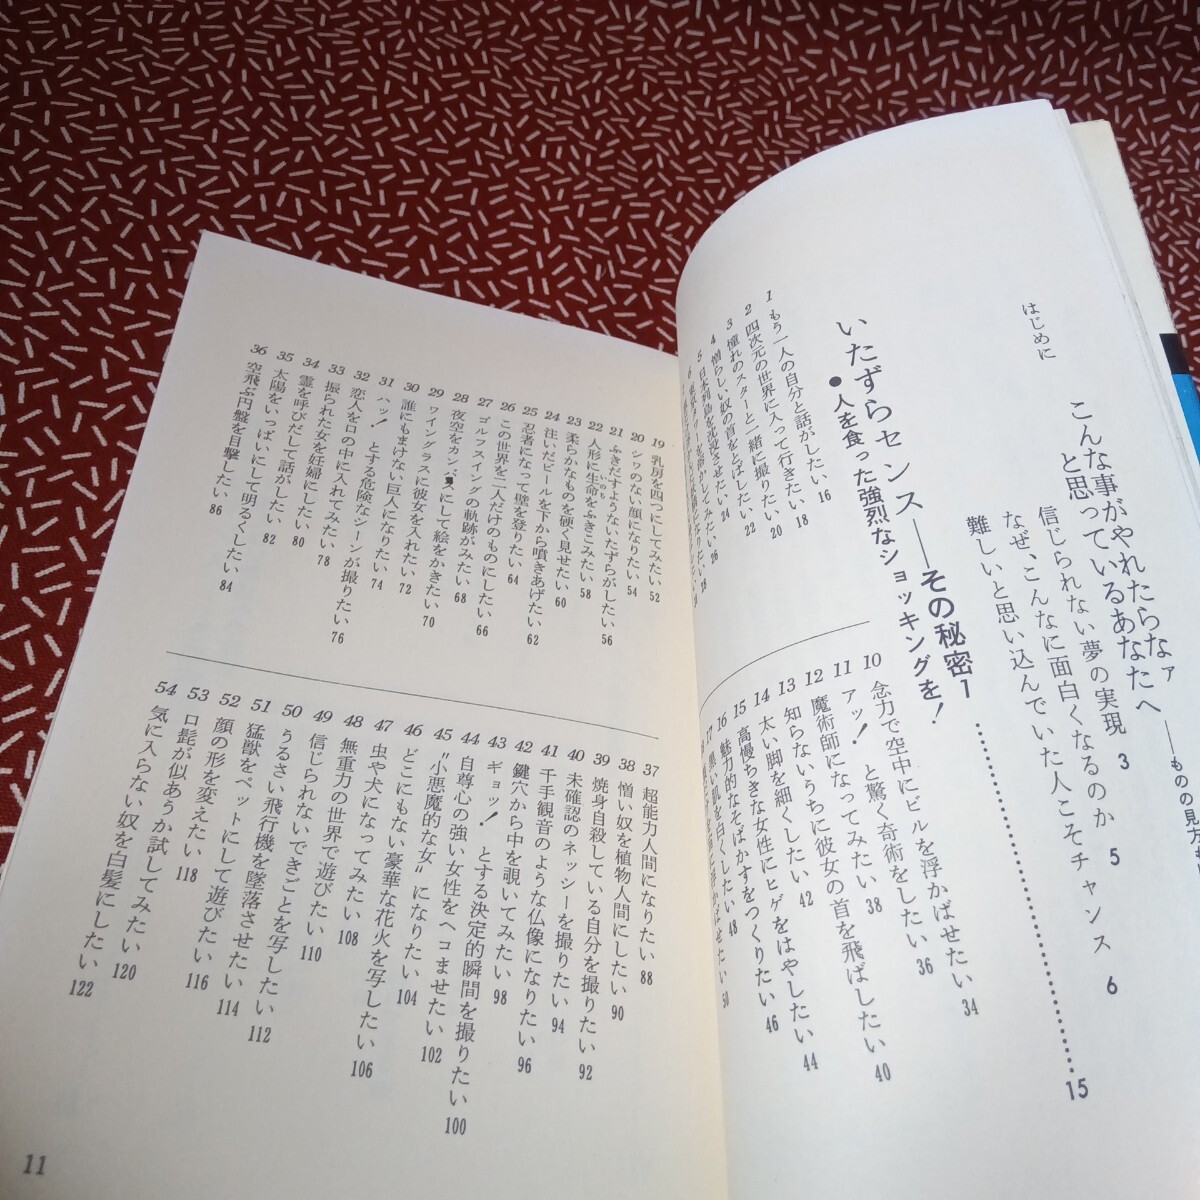 はじめに
こんな事がやれたらなァ
と思っているあなたへ
──ものの見方
信じられない夢の実現 3
なぜ、こんなに面白くなるのか 5
難しいと思い込んでいた人こそチャンス 6
いたずらセンス──その秘密1 15
●人を食った強烈なショッキングを!
1 もう一人の自分と話がしたい 16
2 四次元の世界に入って行きたい 18
3 憧れのスターと一緒に撮りたい 20
4 憎らしい奴の首をとばしたい 22
5 日本列島を沈没させたい 24
10 念力で空中にビルを浮かばせたい 34
11 アッ! と驚く奇術をしたい 36
12 魔術師になってみたい 38
13 知らないうちに彼女の首を飛ばしたい 40
14 太い脚を細くしたい 42
15 高慢ちきな女性にヒゲをはやしたい 44
16 魅力的なそばかすをつくりたい 46
17 黒い肌を白くしたい 48
19 乳房を四つにしてみたい 52
20 シワのない顔になりたい 54
21 ふきだすようないたずらがしたい 56
22 人形に生命をふきこみたい 58
いのち
23 柔らかなものを硬く見せたい 60
24 注いだビールを下から噴きあげたい 62
25 忍者になって壁を登りたい 64
26 この世界を二人だけのものにしたい 66
27 ゴルフスイングの軌跡がみたい 68
28 夜空をカンバスにして絵をかきたい 70
29 ワイングラスに彼女を入れたい 72
30 誰にもまけない巨人になりたい 74
31 ハッ! とする危険なシーンが撮りたい 76
32 恋人を口の中に入れてみたい 78
33 振られた女を妊婦にしたい 80
34 霊を呼びだして話がしたい 82
35 太陽をいっぱいにして明るくしたい 84
36 空飛ぶ円盤を目撃したい 86
37 超能力人間になりたい 88
38 憎い奴を植物人間にしたい 90
39 焼身自殺している自分を撮りたい 92
40 未確認のネッシーを撮りたい 94
41 千手観音のような仏像になりたい 96
42 鍵穴から中を覗いてみたい 98
43 ギョッ! とする決定的瞬間を撮りたい 100
44 自尊心の強い女性をヘコませたい 102
45 "小悪魔的な女"になりたい 104
46 どこにもない豪華な花火を写したい 106
47 虫や犬になってみたい 108
48 無重力の世界で遊びたい 110
49 信じられないできごとを写したい 112
50 うるさい飛行機を墜落させたい 114
51 猛獣をペットにして遊びたい 116
52 顔の形を変えたい 118
53 口髭が似あうか試してみたい 120
54 気に入らない奴を白髪にしたい 122
11